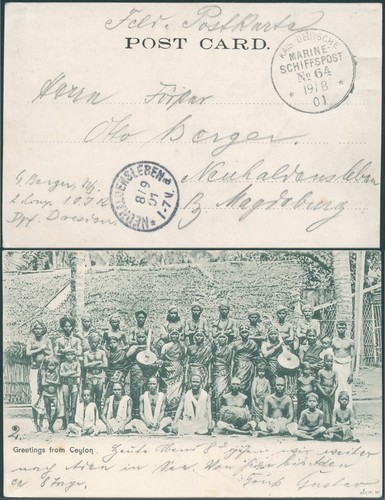 Feld-Postkarte
POST CARD.
KAIS. DEUTSCHE
MARINE-
SCHIFFSPOST
No 64
19/8
01
Herrn Förster
Otto Berger.
Neuhaldensleben
Bz Magdeburg
NEUHALDENSLEBEN
8/9
01
1-7 V.
G. Berger,
2 Komp. I O. J. R.
Dpf. Dresden
2.
Greetings from Ceylon
Heute Abend 8 Uhr wir weiter
nach in See. Von hier
er Tage. Gruß Gustav